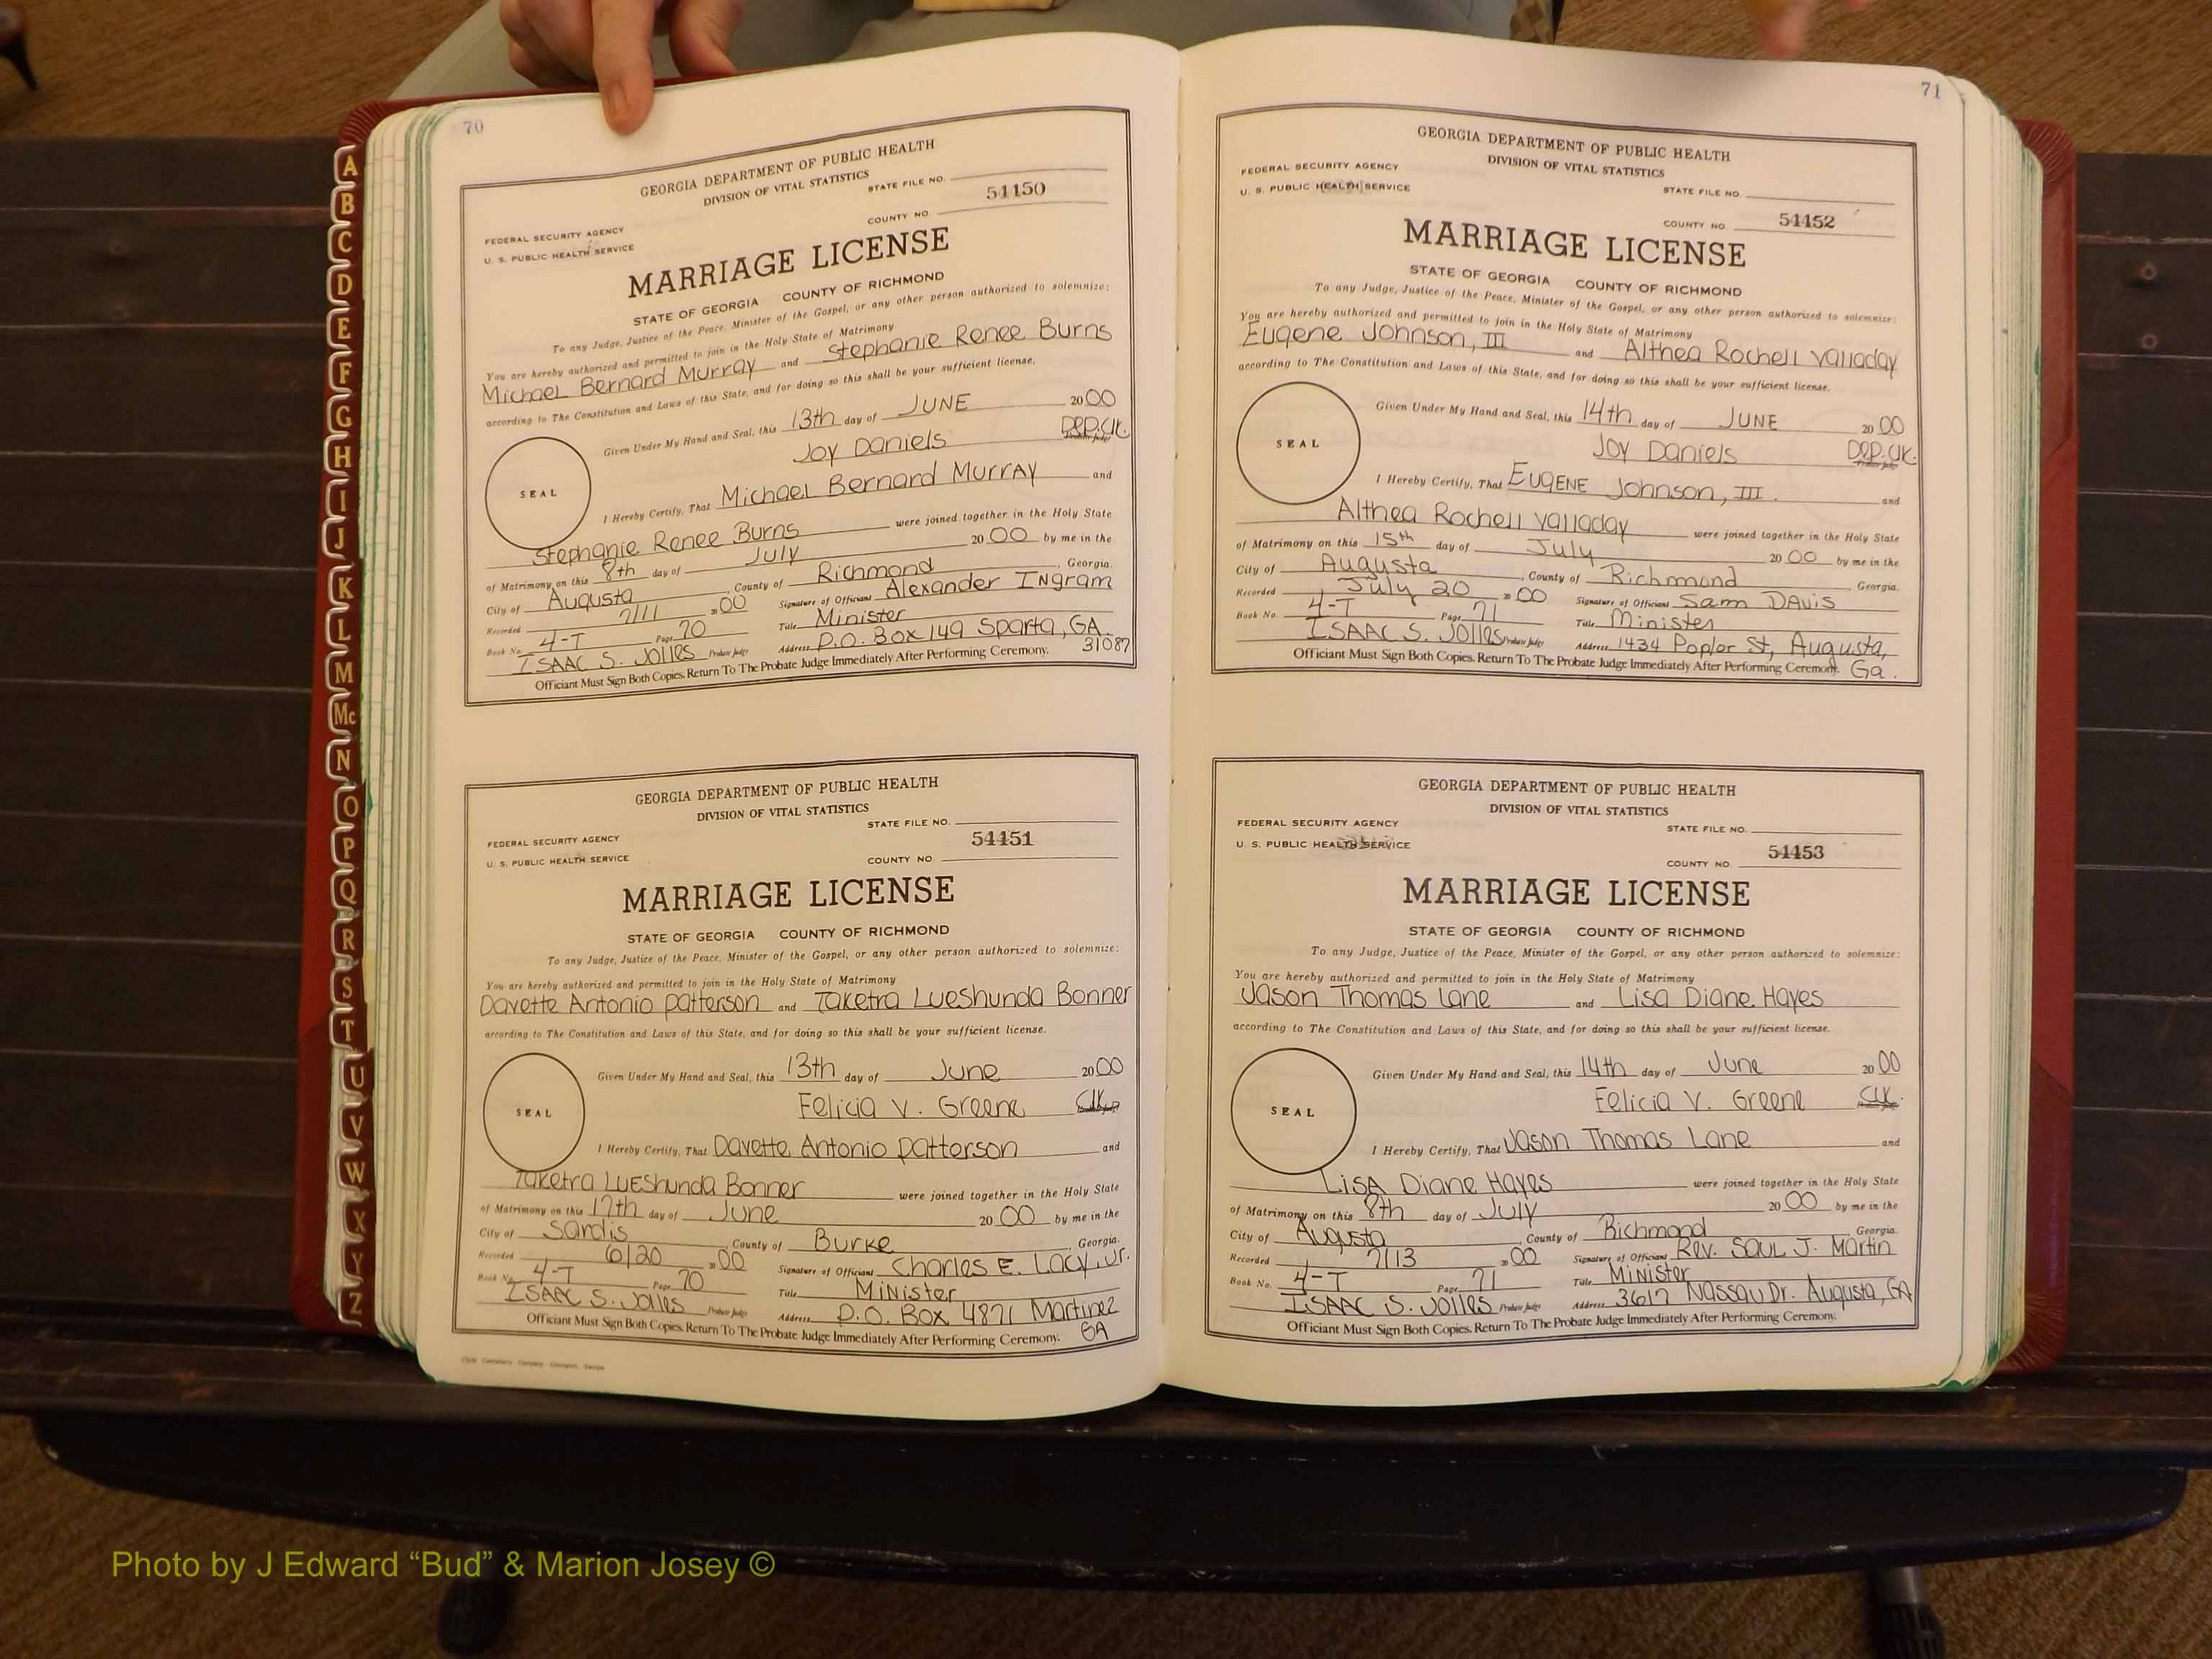 A
B
C
D
E
F
G
H
I
J
K
L
M
Mc
N
O
P
Q
R
S
T
U
V
W
X
Y
Z
70
GEORGIA DEPARTMENT OF PUBLIC HEALTH
DIVISION OF VITAL STATISTICS
STATE FILE NO.
54450
COUNTY NO.
FEDERAL SECURITY AGENCY
U. S. PUBLIC HEALTH SERVICE
MARRIAGE LICENSE
STATE OF GEORGIA COUNTY OF RICHMOND
To any Judge, Justice of the Peace, Minister of the Gospel, or any other person authorized to solemnize:
You are hereby authorized and permitted to join in the Holy State of Matrimony
Michael Bernard Murray and Stephanie Renee Burns
according to The Constitution and Laws of this State, and for doing so this shall be your sufficient license.
Given Under My Hand and Seal, this 13th day of JUNE 2000
SEAL
Joy Daniels Dep. Clk.
I Hereby Certify, That Michael Bernard Murray and
Stephanie Renee Burns were joined together in the Holy State
of Matrimony on this 8th day of July 2000 by me in the
City of Augusta, County of Richmond, Georgia.
Recorded 7/11 2000 Signature of Officiant Alexander Ingram
Book No. 4-T Page 70 Title Minister
ISAAC S. Jolles Probate Judge Address P.O. Box 149 Sparta, GA. 31087
Officiant Must Sign Both Copies. Return To The Probate Judge Immediately After Performing Ceremony.
GEORGIA DEPARTMENT OF PUBLIC HEALTH
DIVISION OF VITAL STATISTICS
STATE FILE NO.
FEDERAL SECURITY AGENCY
54451
U. S. PUBLIC HEALTH SERVICE
COUNTY NO.
MARRIAGE LICENSE
STATE OF GEORGIA COUNTY OF RICHMOND
To any Judge, Justice of the Peace, Minister of the Gospel, or any other person authorized to solemnize:
You are hereby authorized and permitted to join in the Holy State of Matrimony
Davette Antonio Patterson and Taketra Lueshunda Bonner
according to The Constitution and Laws of this State, and for doing so this shall be your sufficient license.
Given Under My Hand and Seal, this 13th day of June 2000
SEAL
Felicia V. Greene Clk.
I Hereby Certify, That Davette Antonio Patterson and
Taketra Lueshunda Bonner were joined together in the Holy State
of Matrimony on this 17th day of June 2000 by me in the
City of Sardis, County of Burke, Georgia.
Recorded 6/20 2000 Signature of Officiant Charles E. Lacy, Jr.
Book No. 4-T Page 70 Title Minister
ISAAC S. Jolles Probate Judge Address P.O. Box 4871 Martinez GA
Officiant Must Sign Both Copies. Return To The Probate Judge Immediately After Performing Ceremony.
71
GEORGIA DEPARTMENT OF PUBLIC HEALTH
DIVISION OF VITAL STATISTICS
FEDERAL SECURITY AGENCY
U. S. PUBLIC HEALTH SERVICE
STATE FILE NO.
COUNTY NO. 54452
MARRIAGE LICENSE
STATE OF GEORGIA COUNTY OF RICHMOND
To any Judge, Justice of the Peace, Minister of the Gospel, or any other person authorized to solemnize:
You are hereby authorized and permitted to join in the Holy State of Matrimony
Eugene Johnson, III and Althea Rochell Valladay
according to The Constitution and Laws of this State, and for doing so this shall be your sufficient license.
Given Under My Hand and Seal, this 14th day of JUNE 2000
SEAL
Joy Daniels Dep. Clk.
I Hereby Certify, That Eugene Johnson, III. and
Althea Rochell Valladay were joined together in the Holy State
of Matrimony on this 15th day of July 2000 by me in the
City of Augusta, County of Richmond, Georgia.
Recorded July 20 2000 Signature of Officiant Sam Davis
Book No. 4-T Page 71 Title Minister
ISAAC S. Jolles Probate Judge Address 1434 Poplar St, Augusta, Ga.
Officiant Must Sign Both Copies. Return To The Probate Judge Immediately After Performing Ceremony.
GEORGIA DEPARTMENT OF PUBLIC HEALTH
DIVISION OF VITAL STATISTICS
FEDERAL SECURITY AGENCY
STATE FILE NO.
U. S. PUBLIC HEALTH SERVICE
COUNTY NO. 54453
MARRIAGE LICENSE
STATE OF GEORGIA COUNTY OF RICHMOND
To any Judge, Justice of the Peace, Minister of the Gospel, or any other person authorized to solemnize:
You are hereby authorized and permitted to join in the Holy State of Matrimony
Jason Thomas Lane and Lisa Diane Hayes
according to The Constitution and Laws of this State, and for doing so this shall be your sufficient license.
Given Under My Hand and Seal, this 14th day of June 2000
SEAL
Felicia V. Greene Clk.
I Hereby Certify, That Jason Thomas Lane and
Lisa Diane Hayes were joined together in the Holy State
of Matrimony on this 8th day of July 2000 by me in the
City of Augusta, County of Richmond, Georgia.
Recorded 7/13 2000 Signature of Officiant Rev. Saul J. Martin
Book No. 4-T Page 71 Title Minister
ISAAC S. Jolles Probate Judge Address 3617 Nassau Dr. Augusta, GA
Officiant Must Sign Both Copies. Return To The Probate Judge Immediately After Performing Ceremony.
Photo by J Edward “Bud” & Marion Josey ©